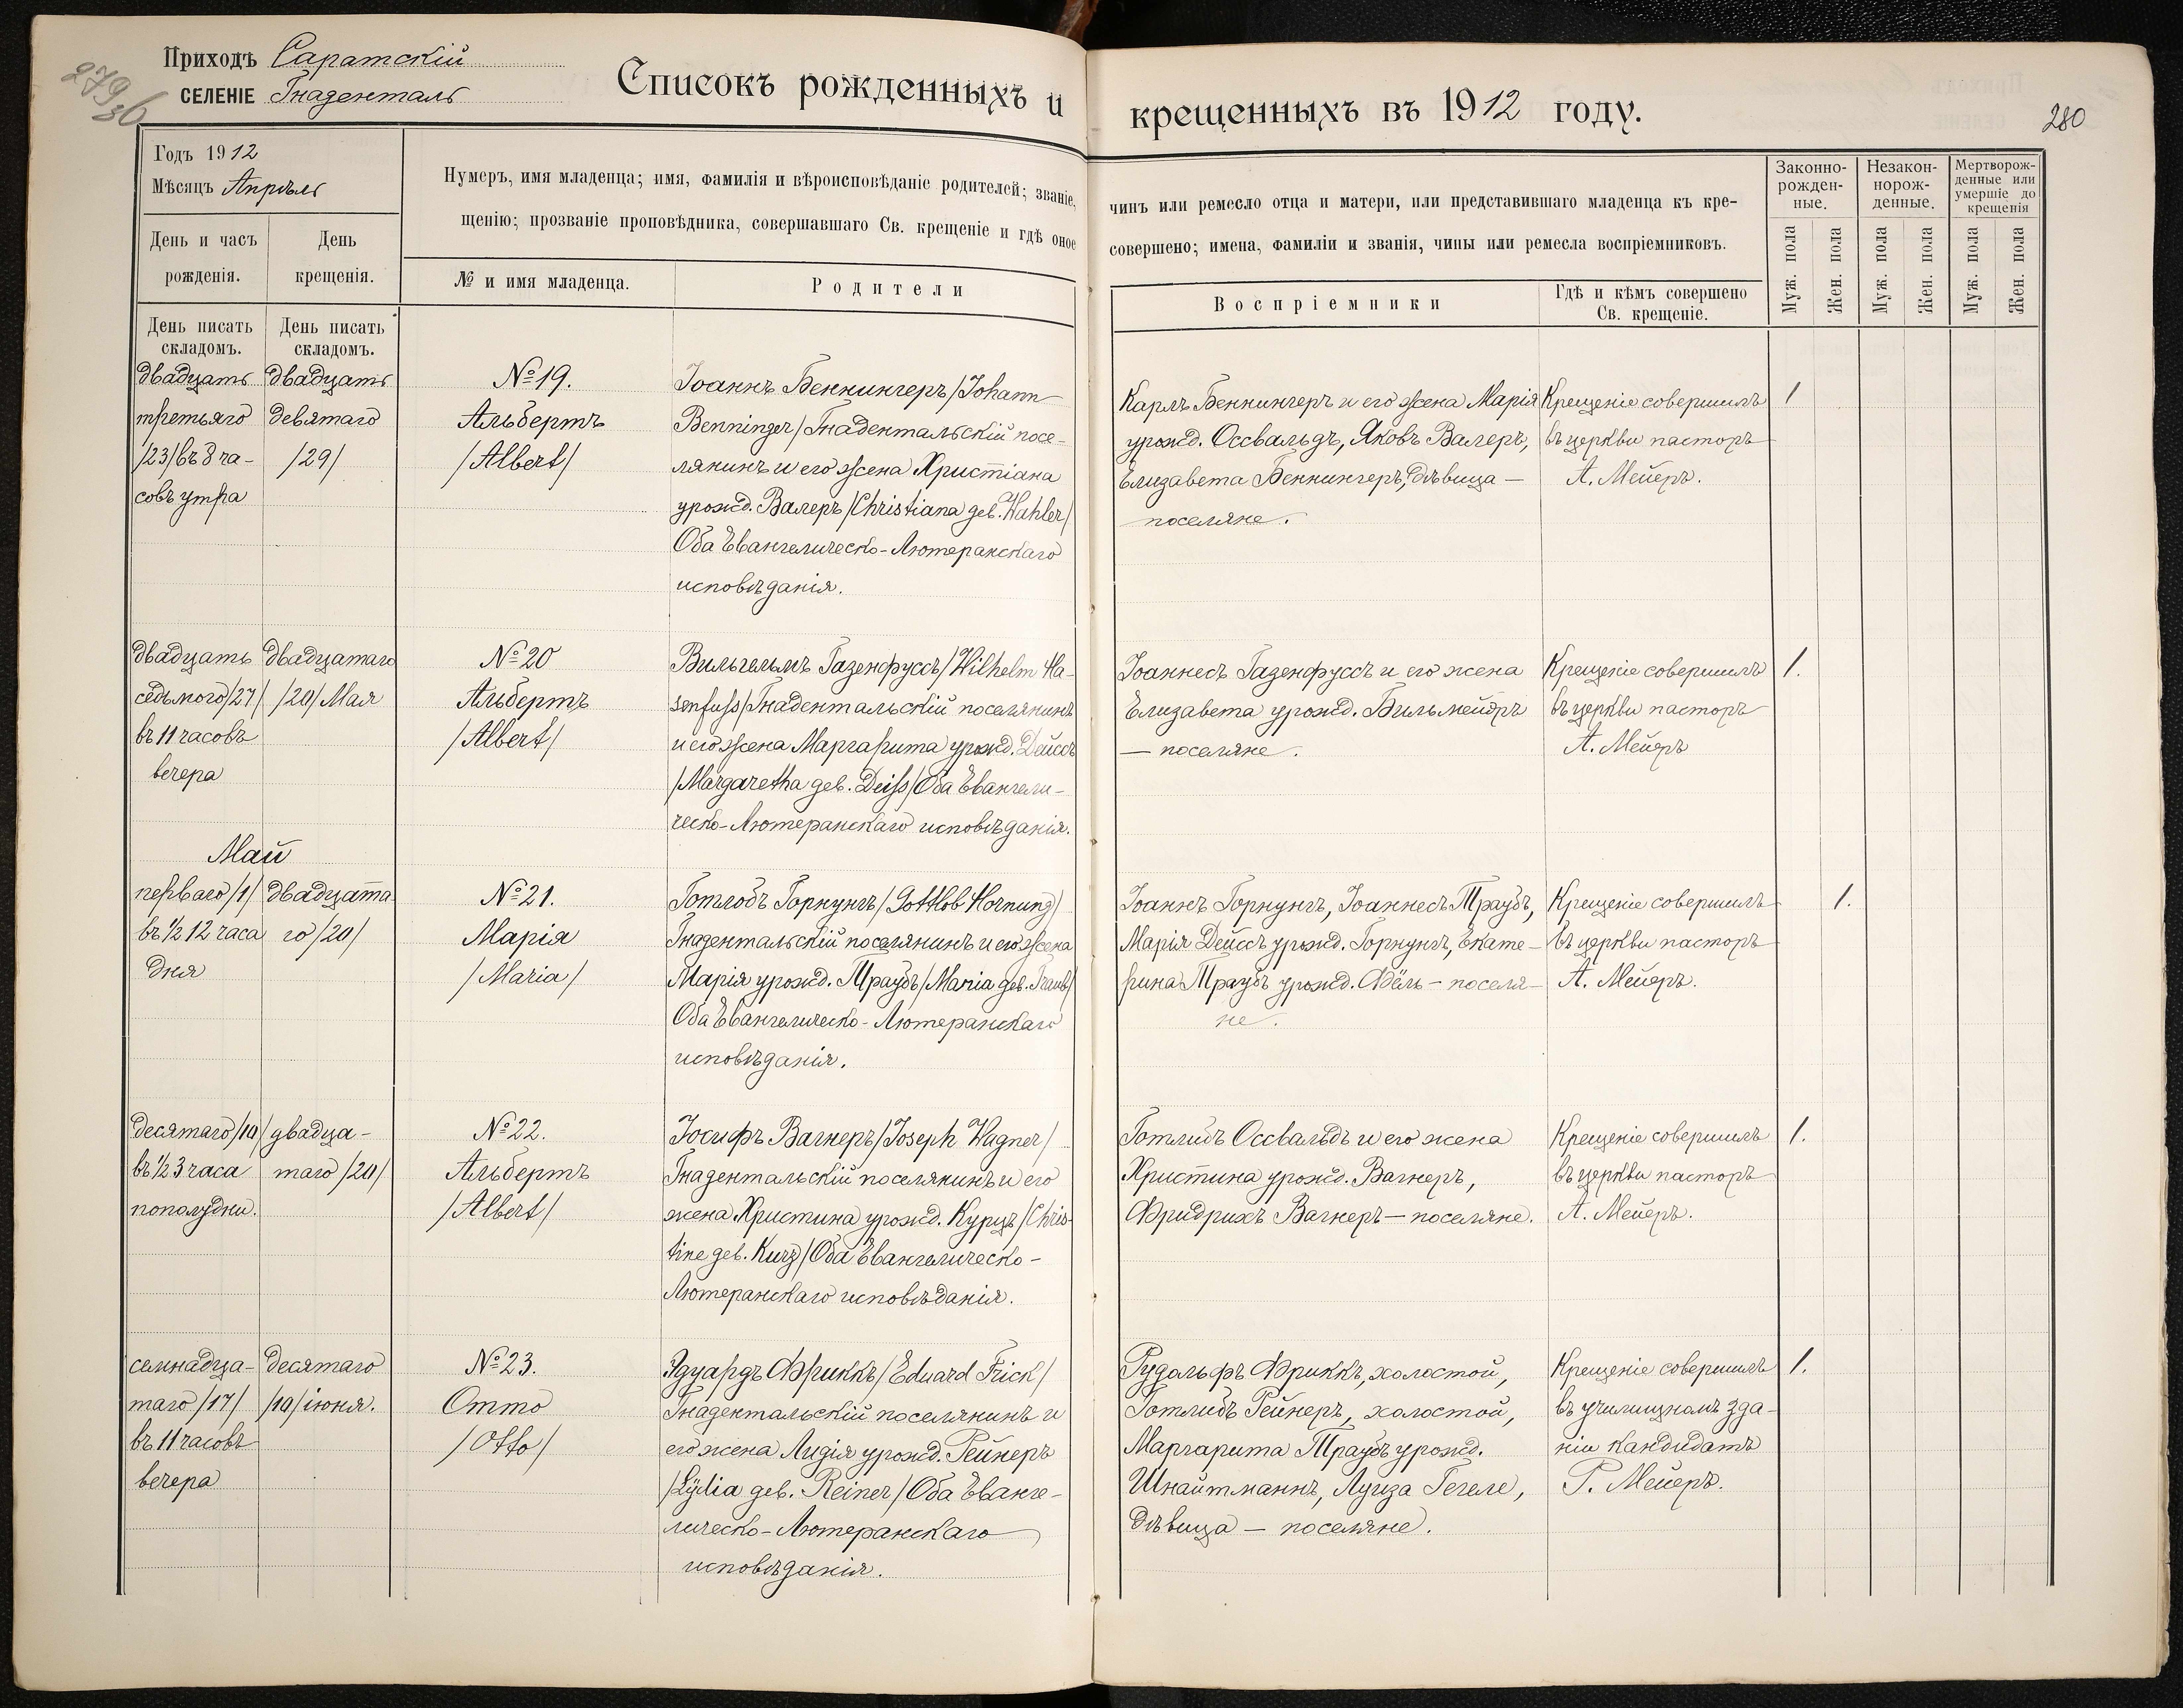 279
36
Приходъ Саратскій
СЕЛЕНІЕ Гнаденталь
Списокъ рожденныхъ и крещенныхъ въ 1912 году.
280
Годъ 1912
Мѣсяцъ Апрѣль
День и часъ
рожденія.
День
крещенія.
Нумеръ, имя младенца; имя, фамилія и вѣроисповѣданіе родителей; званіе,
щенію; прозваніе проповѣдника, совершавшаго Св. крещеніе и гдѣ оное
№ и имя младенца.
Родители
чинъ или ремесло отца и матери, или представившаго младенца къ кре-
совершено; имена, фамиліи и званія, чины или ремесла воспріемниковъ.
Воспріемники
Гдѣ и кѣмъ совершено
Св. крещеніе.
Законно-
рожден-
ные.
Незакон-
норож-
денные.
Мертворож-
денные или
умершіе до
крещенія
Муж. пола
Жен. пола
Муж. пола
Жен. пола
Муж. пола
Жен. пола
День писать
складомъ.
День писать
складомъ.
двадцать
третьяго
/23/ въ 8 ча-
совъ утра
двадцать
девятаго
/29/
№ 19.
Альбертъ
/Albert/
Іоаннъ Беннингеръ /Johann
Benninger/ Гнадентальскій посе-
лянинъ и его жена Христіана
урожд. Валеръ /Christiana geb. Wahler/
Оба Евангелическо-Лютеранскаго
исповѣданія.
Карлъ Беннингеръ и его жена Марія
урожд. Оссвальдъ, Яковъ Валеръ,
Елизавета Беннингеръ, дѣвица —
поселяне.
Крещеніе совершилъ
въ церкви пасторъ
А. Мейеръ.
1
двадцать
седьмого /27/
въ 11 часовъ
вечера
двадцатаго
/20/ Мая
№ 20
Альбертъ
/Albert/
Вильгельмъ Газенфуссъ /Wilhelm Ha-
senfuss/ Гнадентальскій поселянинъ
и его жена Маргарита урожд. Дейссъ
/Margaretha geb. Deiss/ Оба Евангели-
ческо-Лютеранскаго исповѣданія.
Іоаннесъ Газенфуссъ и его жена
Елизавета урожд. Вильмейеръ
— поселяне.
Крещеніе совершилъ
въ церкви пасторъ
А. Мейеръ
1.
Май
перваго /1/
въ ½ 12 часа
дня
двадцата
го /20/
№ 21.
Марія
/Maria/
Готлобъ Горнунгъ /Gottlob Hornung/
Гнадентальскій поселянинъ и его жена
Марія урожд. Траубъ /Maria geb. Traub/
Оба Евангелическо-Лютеранскаго
исповѣданія.
Іоаннъ Горнунгъ, Іоаннесъ Траубъ,
Марія Дейссъ урожд. Горнунгъ, Екате-
рина Траубъ урожд. Фёлль — поселя-
не.
Крещеніе совершилъ
въ церкви пасторъ
А. Мейеръ.
1.
десятаго /10/
въ ½ 3 часа
пополудни.
двадца-
таго /20/
№ 22.
Альбертъ
/Albert/
Іосифъ Вагнеръ /Joseph Wagner/
Гнадентальскій поселянинъ и его
жена Христина урожд. Курцъ /Chris-
tine geb. Kurz/ Оба Евангелическо-
Лютеранскаго исповѣданія.
Готлибъ Оссвальдъ и его жена
Христина урожд. Вагнеръ,
Фридрихъ Вагнеръ — поселяне.
Крещеніе совершилъ
въ церкви пасторъ
А. Мейеръ.
1.
семнадца-
таго /17/
въ 11 часовъ
вечера
десятаго
/10/ іюня.
№ 23.
Отто
/Otto/
Эдуардъ Фриккъ /Eduard Frick/
Гнадентальскій поселянинъ и
его жена Лидія урожд. Рейнеръ
/Lydia geb. Reiner/ Оба Еванге-
лическо-Лютеранскаго
исповѣданія.
Рудольфъ Фриккъ, холостой,
Готлибъ Рейнеръ, холостой,
Маргарита Траубъ урожд.
Шнайтманнъ, Луиза Гегеле,
дѣвица — поселяне.
Крещеніе совершилъ
въ училищномъ зда-
ніи кандидатъ
Р. Мейеръ.
1.